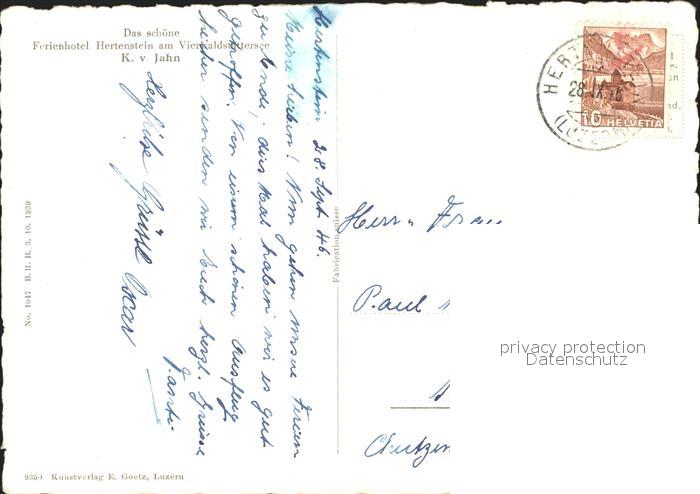 Das schöne
Ferienhotel Hertenstein am Vierwaldstättersee
K. v. Jahn
Hertenstein 28. Sept 46.
Meine Lieben! Nun gehen unsere Ferien
zu Ende, dies Mal haben wir es gut
getroffen. Von einem schönen Ausflug
hierher senden wir Euch herzl. Grüsse
Tanti
Herzliche Grüsse Oscar
No. 1047 B. R. B. 3. 10. 1939
Fabrication suisse
9350 Kunstverlag E. Goetz, Luzern
28.IX.46
(LUZERN)
10 HELVETIA
Herrn Frau
Paul
privacy protection
Datenschutz